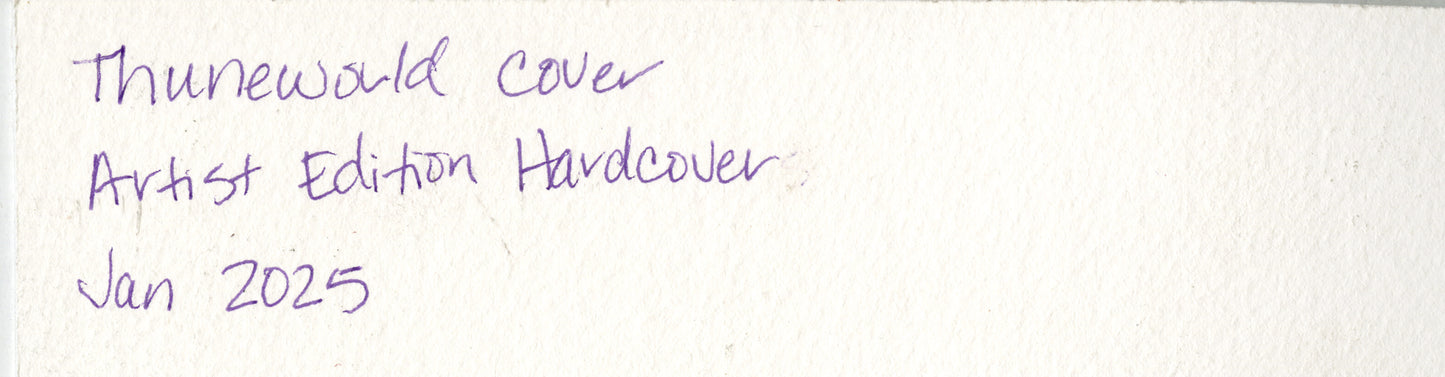 Thuneworld cover
Artist Edition Hardcover
Jan 2025